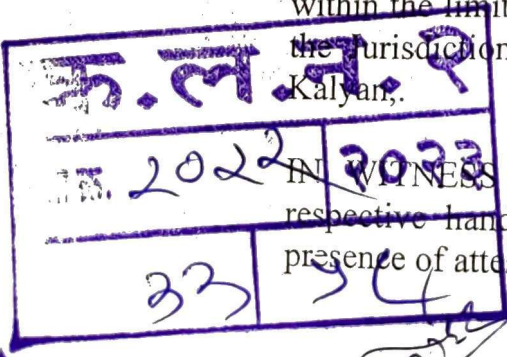 within the limit
the Jurisdiction
क.ल.न.२
Kalyan,.
२०२२ २०२३
IN WITNESS
respective hand
presence of atte
३३ ५८